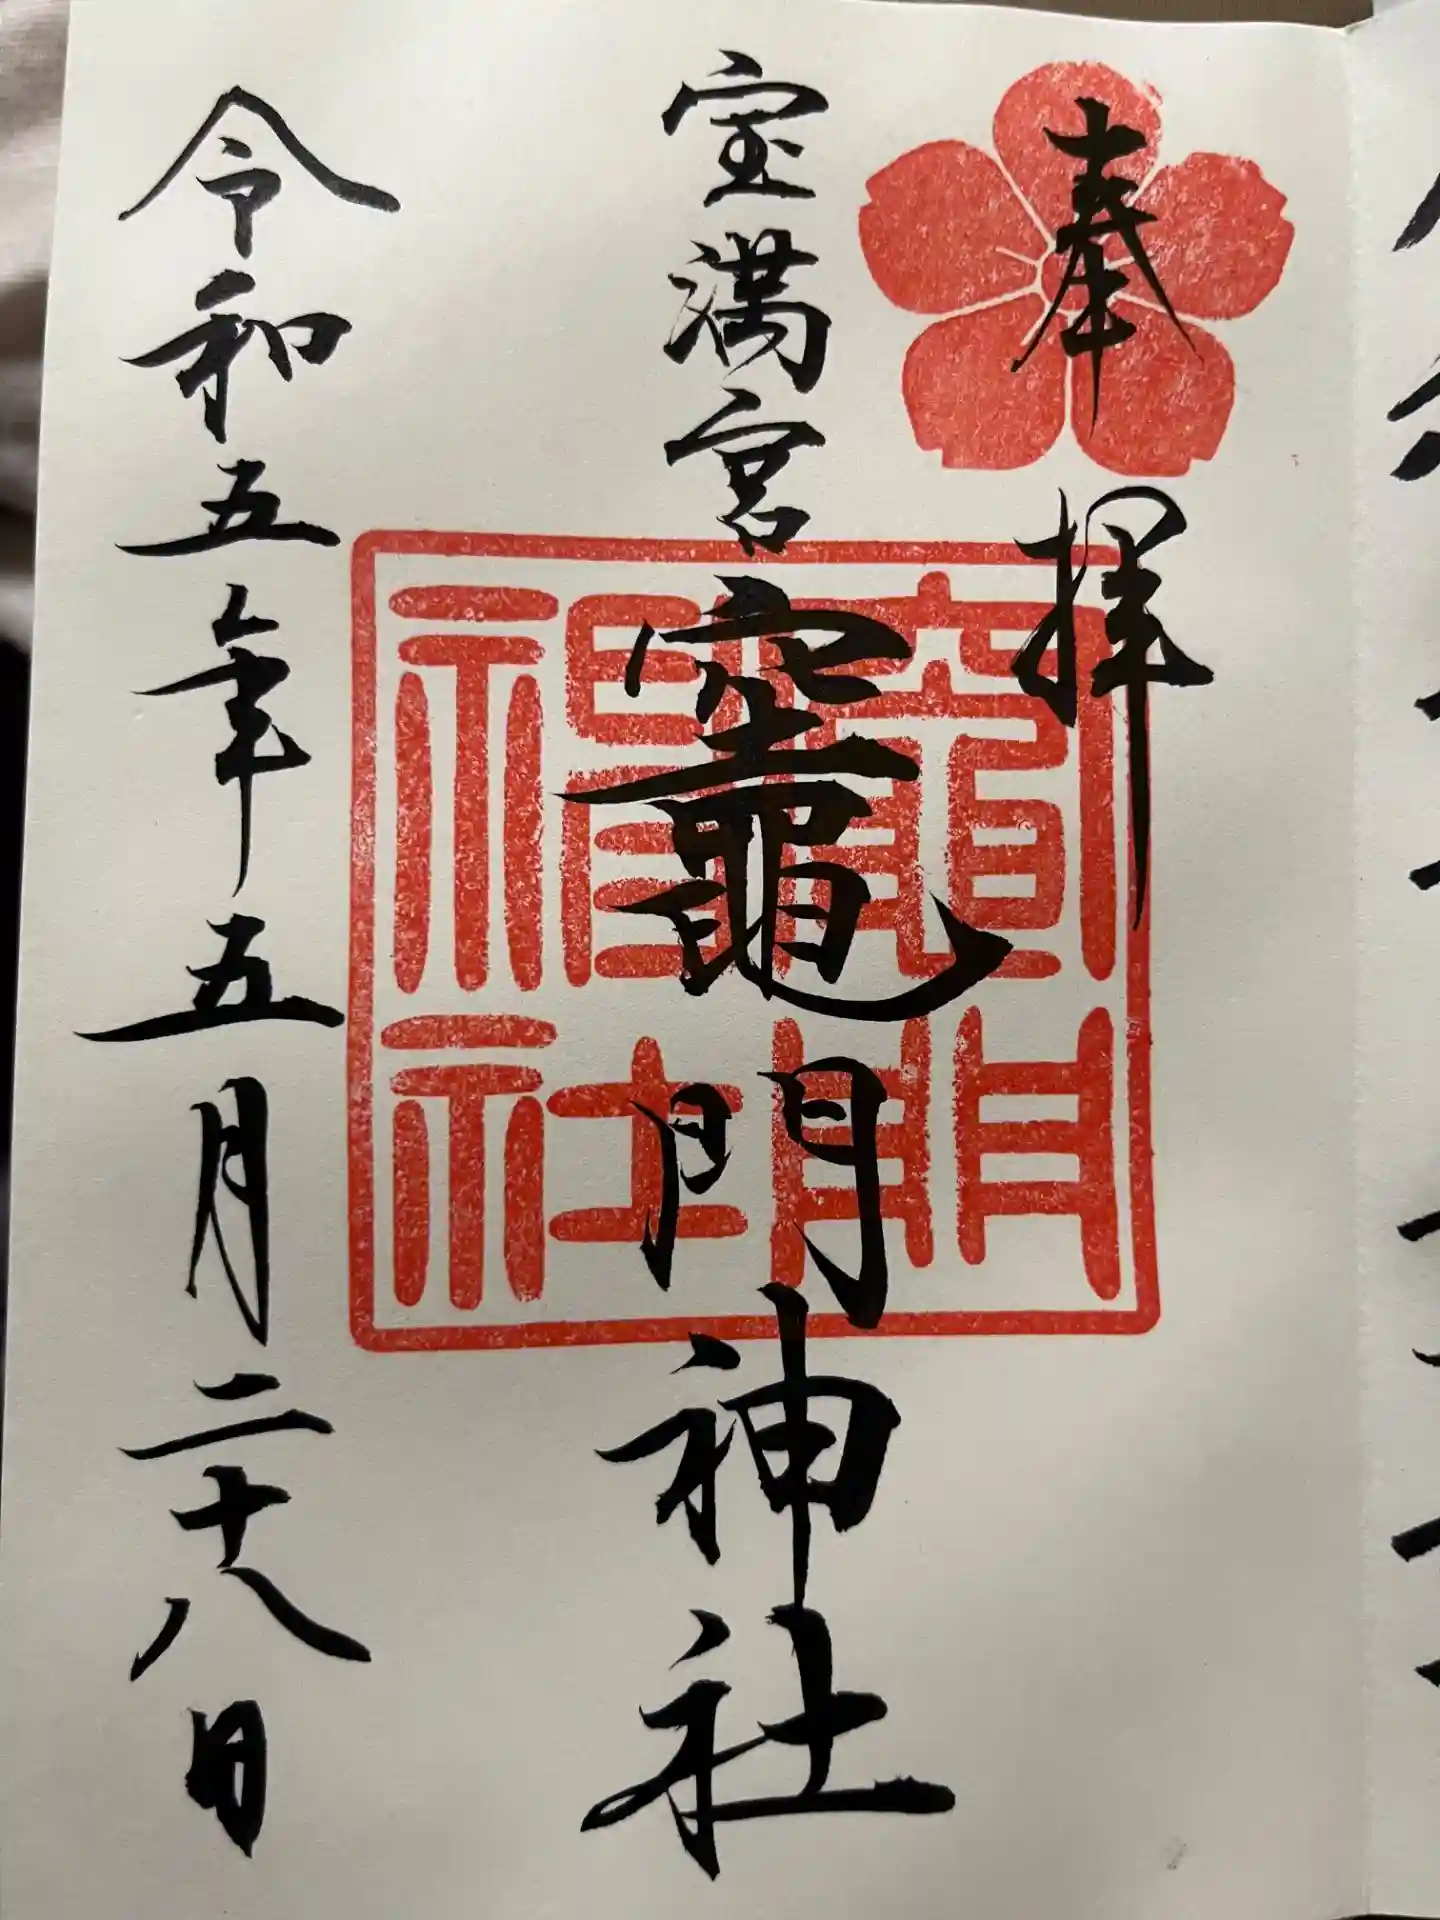 奉拝
宝満宮竈門神社
竈門神社
令和五年五月二十八日